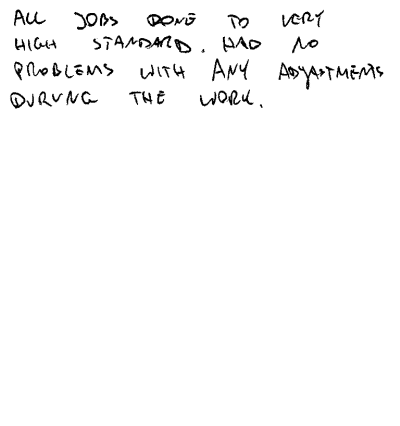 ALL JOBS DONE TO VERY
HIGH STANDARD. HAD NO
PROBLEMS WITH ANY ADYASTMENTS
DURVNG THE WORK.